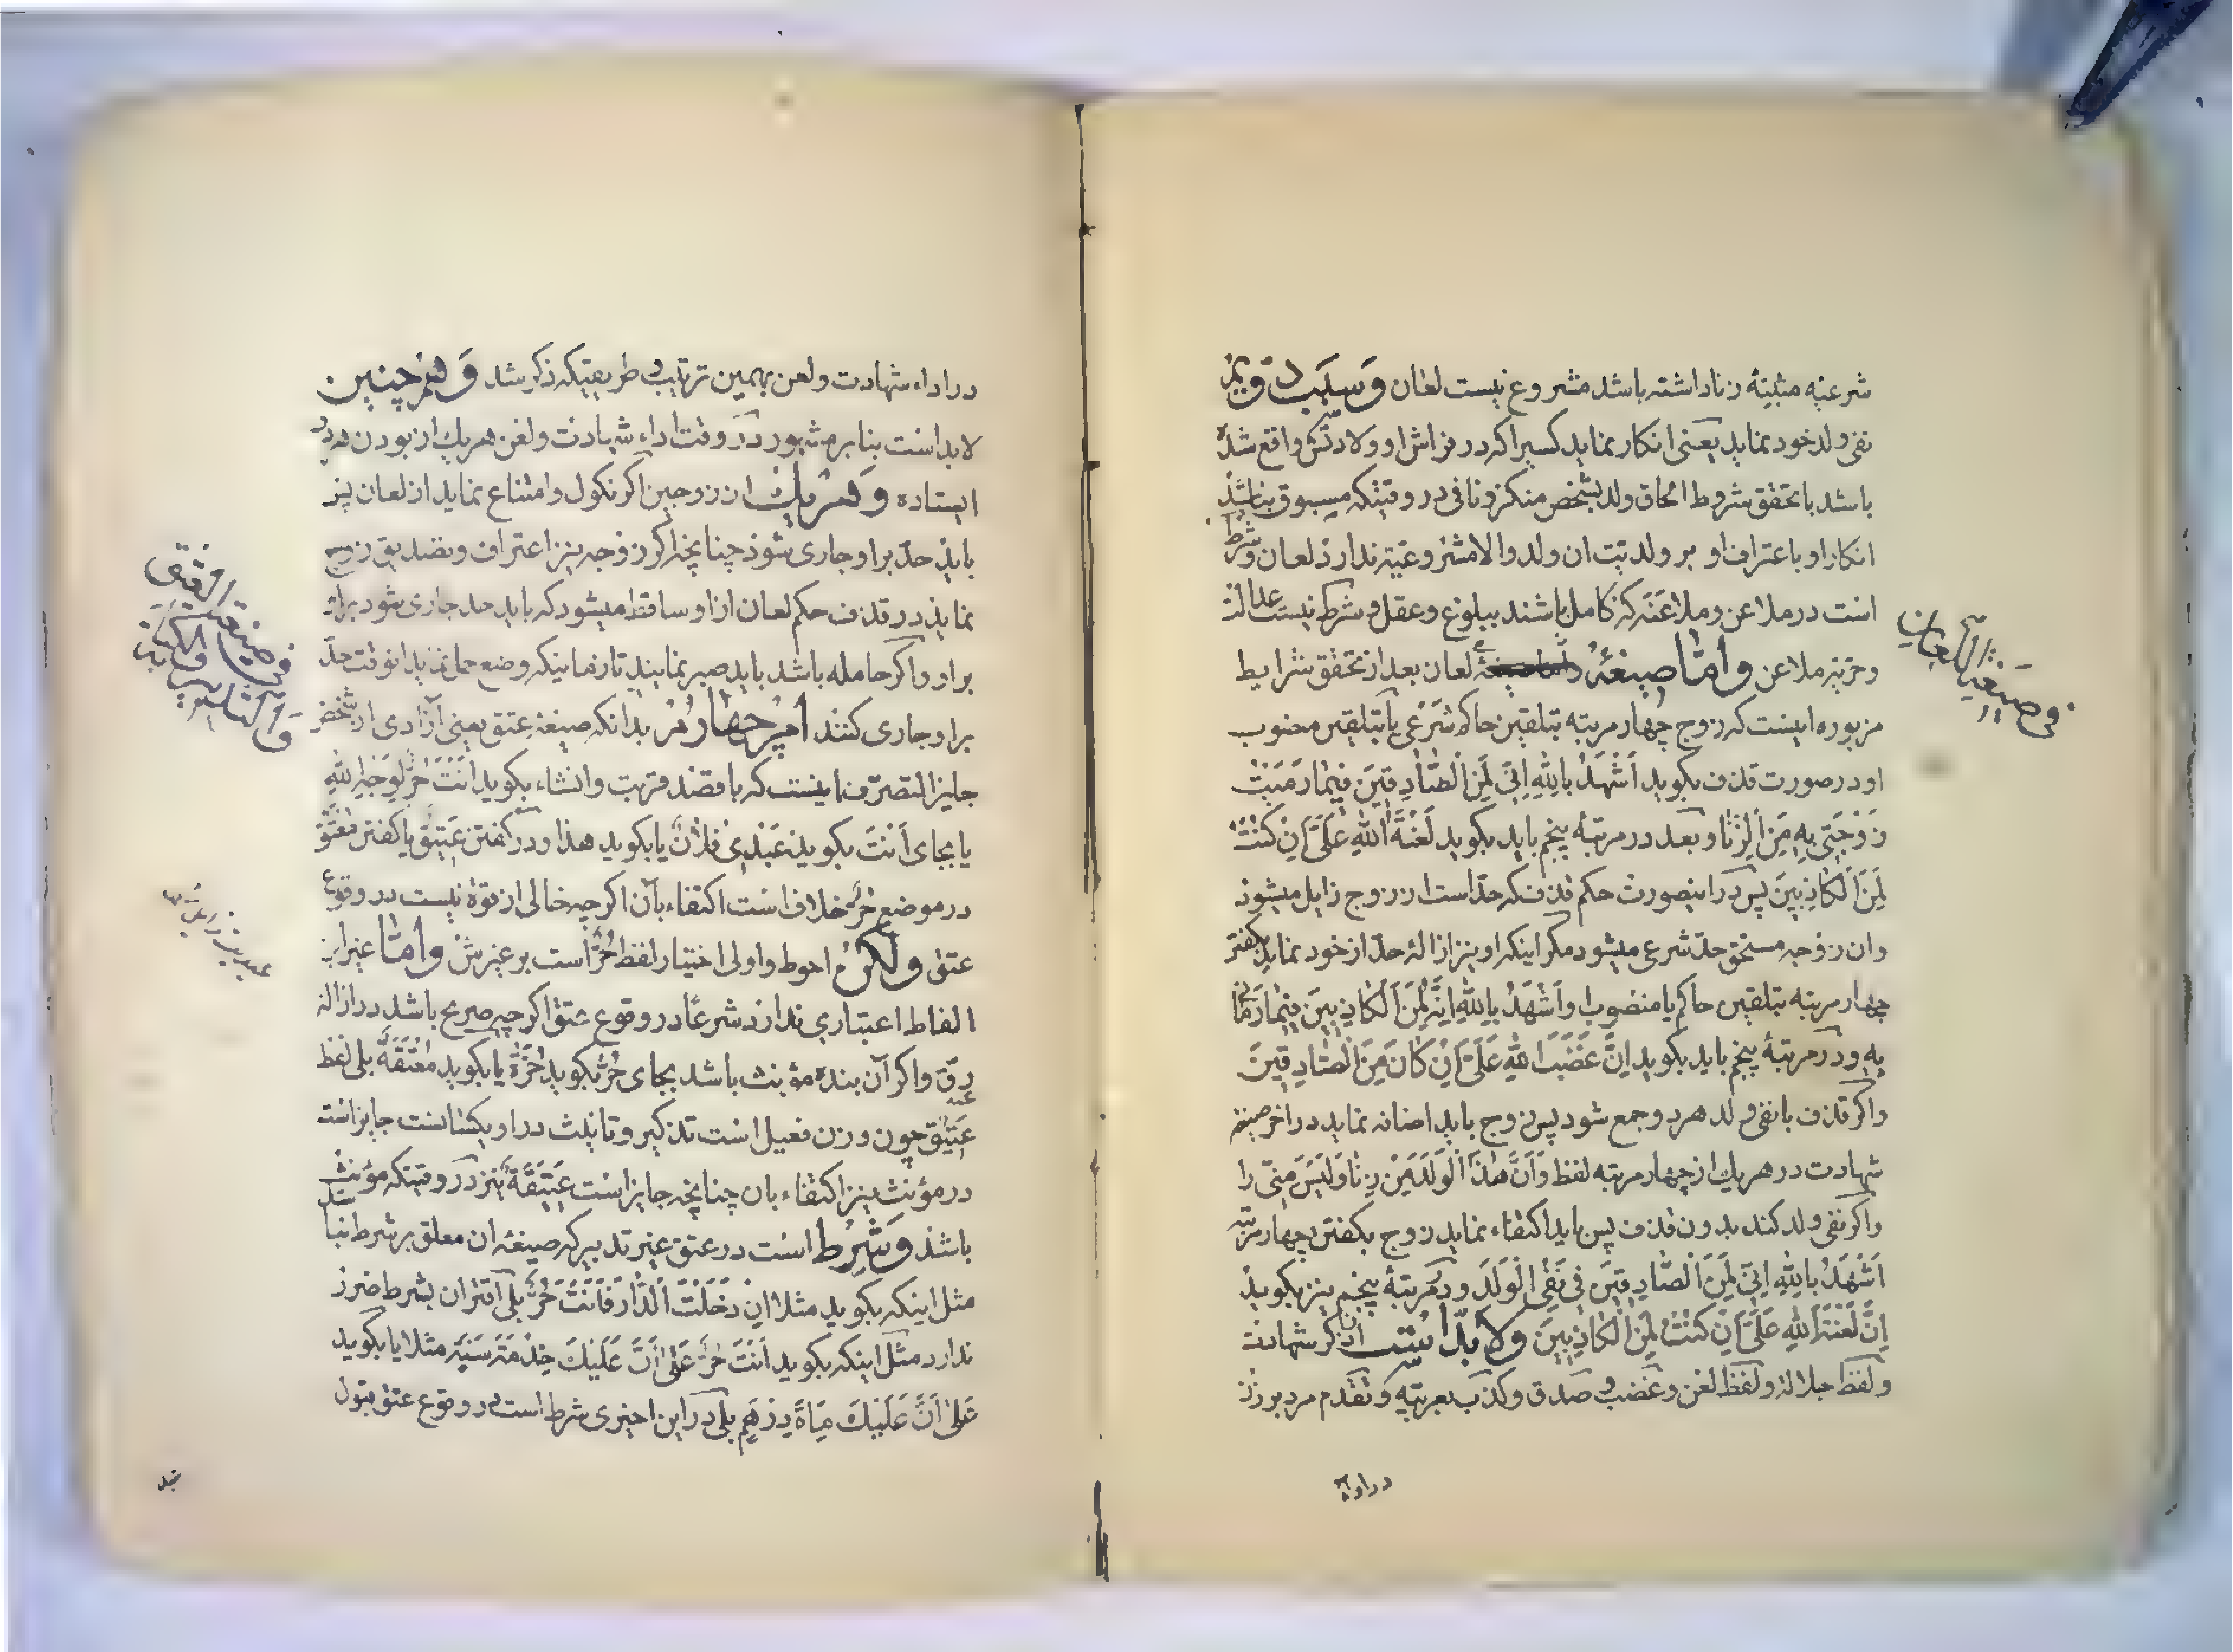 شرعیه مبینهٔ زنا داشته باشد مشروع نیست لعان و سبب دویم
نفی ولد خود نماید یعنی انکار نماید کسیرا که در فراش او ولادتش واقع شده
باشد با تحقق شروط الحاق ولد بشخص منکر و نافی در وقتیکه مسبوق نباشد
انکار او باعتراف او بر ولدیت ان ولد والا مشروعیة ندارد لعان و شرط
است در ملاعن و ملاعنه که کامل باشند ببلوغ و عقل و شرط نیست عدالت
و حریة ملاعن و امّا صیغهٔ لعان بعد از تحقق شرایط
مزبوره اینست که زوج چهار مرتبه بتلقین حاکم شرعی یا بتلقین منصوب
او در صورت قذف بکوید اَشْهَدُ بِاللهِ اِنّی لَمِنَ الصّادِقینَ فیما رَمَیْتُ
زَوْجَتی بِهِ مِنَ الزِّنا و بعد در مرتبهٔ پنجم باید بکوید لَعْنَةُ اللهِ عَلَیَّ اِنْ کُنْتُ
لَمِنَ الْکاذِبینَ پس در اینصورت حکم قذف که حدّ است از زوج زایل میشود
وان زوجه مستحق حدّ شرعی میشود مکر اینکه او نیز ازالهٔ حدّ از خود نماید بکفتن
چهار مرتبه بتلقین حاکم یا منصوب او اَشْهَدُ بِاللهِ اِنَّهُ لَمِنَ الْکاذِبینَ فیما رَمانی
بِهِ و در مرتبهٔ پنجم باید بکوید اِنَّ غَضَبَ اللهِ عَلَیَّ اِنْ کانَ مِنَ الصّادِقینَ
واکر قذف با نفی ولد هر دو جمع شود پس زوج باید اضافه نماید در اخر صیغه
شهادت در هر یك از چهار مرتبه لفظ وَاَنَّ هذَا الْوَلَدَ مِنْ زِنا وَلَیْسَ مِنّی را
واکر نفی ولد کند بدون قذف پس باید اکتفاء نماید زوج بکفتن چهار مرتبه
اَشْهَدُ بِاللهِ اِنّی لَمِنَ الصّادِقینَ فی نَفْیِ الْوَلَدِ و در مرتبهٔ پنجم نیز بکوید
اِنَّ لَعْنَةَ اللهِ عَلَیَّ اِنْ کُنْتُ لَمِنَ الْکاذِبینَ ولابدّ است از ذکر شهادت
ولفظ جلاله ولفظ لعن وغضب و صدق وکذب بعربیّه و تقدم مرد بر زن
فی صیغة اللعان
در اداء
در اداء شهادت ولعن بهمین ترتیب و طریقیکه ذکر شد و همچنین
لابد است بنا بر مشهور در وقت اداء شهادت ولعن هر یك از بودن هر دو
ایستاده و هر یك از زوجین اکر نکول وامتناع نماید از لعان پس
باید حدّ بر او جاری شود چنانچه اکر زوجه نیز اعتراف وتصدیق زوج
نماید در قذف حکم لعان از او ساقط میشود که باید حد جاری شود براو
براو واکر حامله باشد باید صبر نمایند تا زمانیکه وضع حمل نماید انوقت حدّ
براو جاری کنند امر چهارم بدانکه صیغهٔ عتق یعنی آزادی از شخص
جایز التصرّف اینست که با قصد قربت وانشاء بکوید اَنْتَ حُرٌّ لِوَجْهِ اللهِ
یا بجای اَنْتَ بکوید عَبْدی فُلانٌ یا بکوید هذا ودر کفتن عَتیقٌ یا کفتن مُعْتَقٌ
در موضع حُرٌّ خلاف است اکتفاء بآن اکرچه خالی از قوّة نیست در وقوع
عتق ولکن احوط واولی اختیار لفظ حُرٌّ است بر غیرش وامّا غیر این
الفاظ اعتباری ندارد شرعًا در وقوع عتق اکرچه صریح باشد در ازاله
رق واکر آن بنده مؤنث باشد بجای حُرٌّ بکوید حُرَّةٌ یا بکوید مُعْتَقَةٌ بلی لفظ
عَتیق چون وزن فعیل است تذکیر و تانیث در او یکسانست جایز است
در مؤنث نیز اکتفاء بان چنانچه جایز است عَتیقَةٌ نیز در وقتیکه مؤنث
باشد و شرط است در عتق غیر تدبیر که صیغه ان معلق بر شرط نباشد
مثل اینکه بکوید مثلا اِنْ دَخَلْتَ الدّارَ فَاَنْتَ حُرٌّ بلی اقتران بشرط ضرر
ندارد مثل اینکه بکوید اَنْتَ حُرٌّ عَلی اَنَّ عَلَیْكَ خِدْمَةَ سَنَةٍ مثلا یا بکوید
عَلی اَنَّ عَلَیْكَ مِاَةَ دِرْهَمٍ بلی در این اخیری شرط است در وقوع عتق قبول
فی صیغة العتق